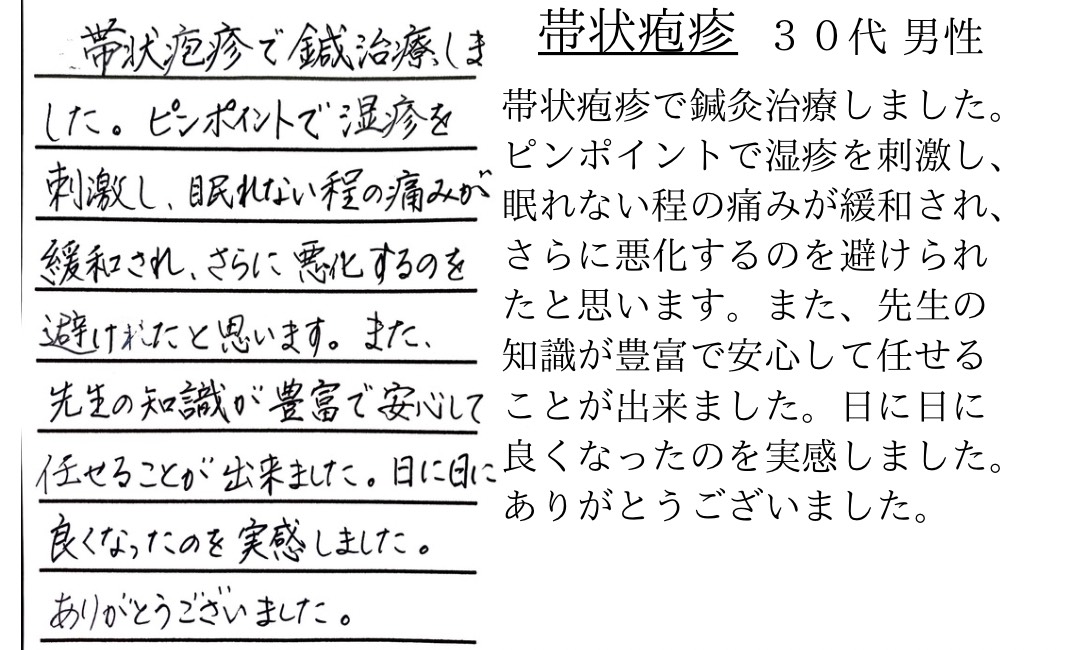 帯状疱疹で鍼治療しま
した。ピンポイントで湿疹を
刺激し、眠れない程の痛みが
緩和され、さらに悪化するのを
避けれたと思います。また、
先生の知識が豊富で安心して
任せることが出来ました。日に日に
良くなったのを実感しました。
ありがとうございました。
帯状疱疹 30代 男性
帯状疱疹で鍼灸治療しました。
ピンポイントで湿疹を刺激し、
眠れない程の痛みが緩和され、
さらに悪化するのを避けられ
たと思います。また、先生の
知識が豊富で安心して任せる
ことが出来ました。日に日に
良くなったのを実感しました。
ありがとうございました。